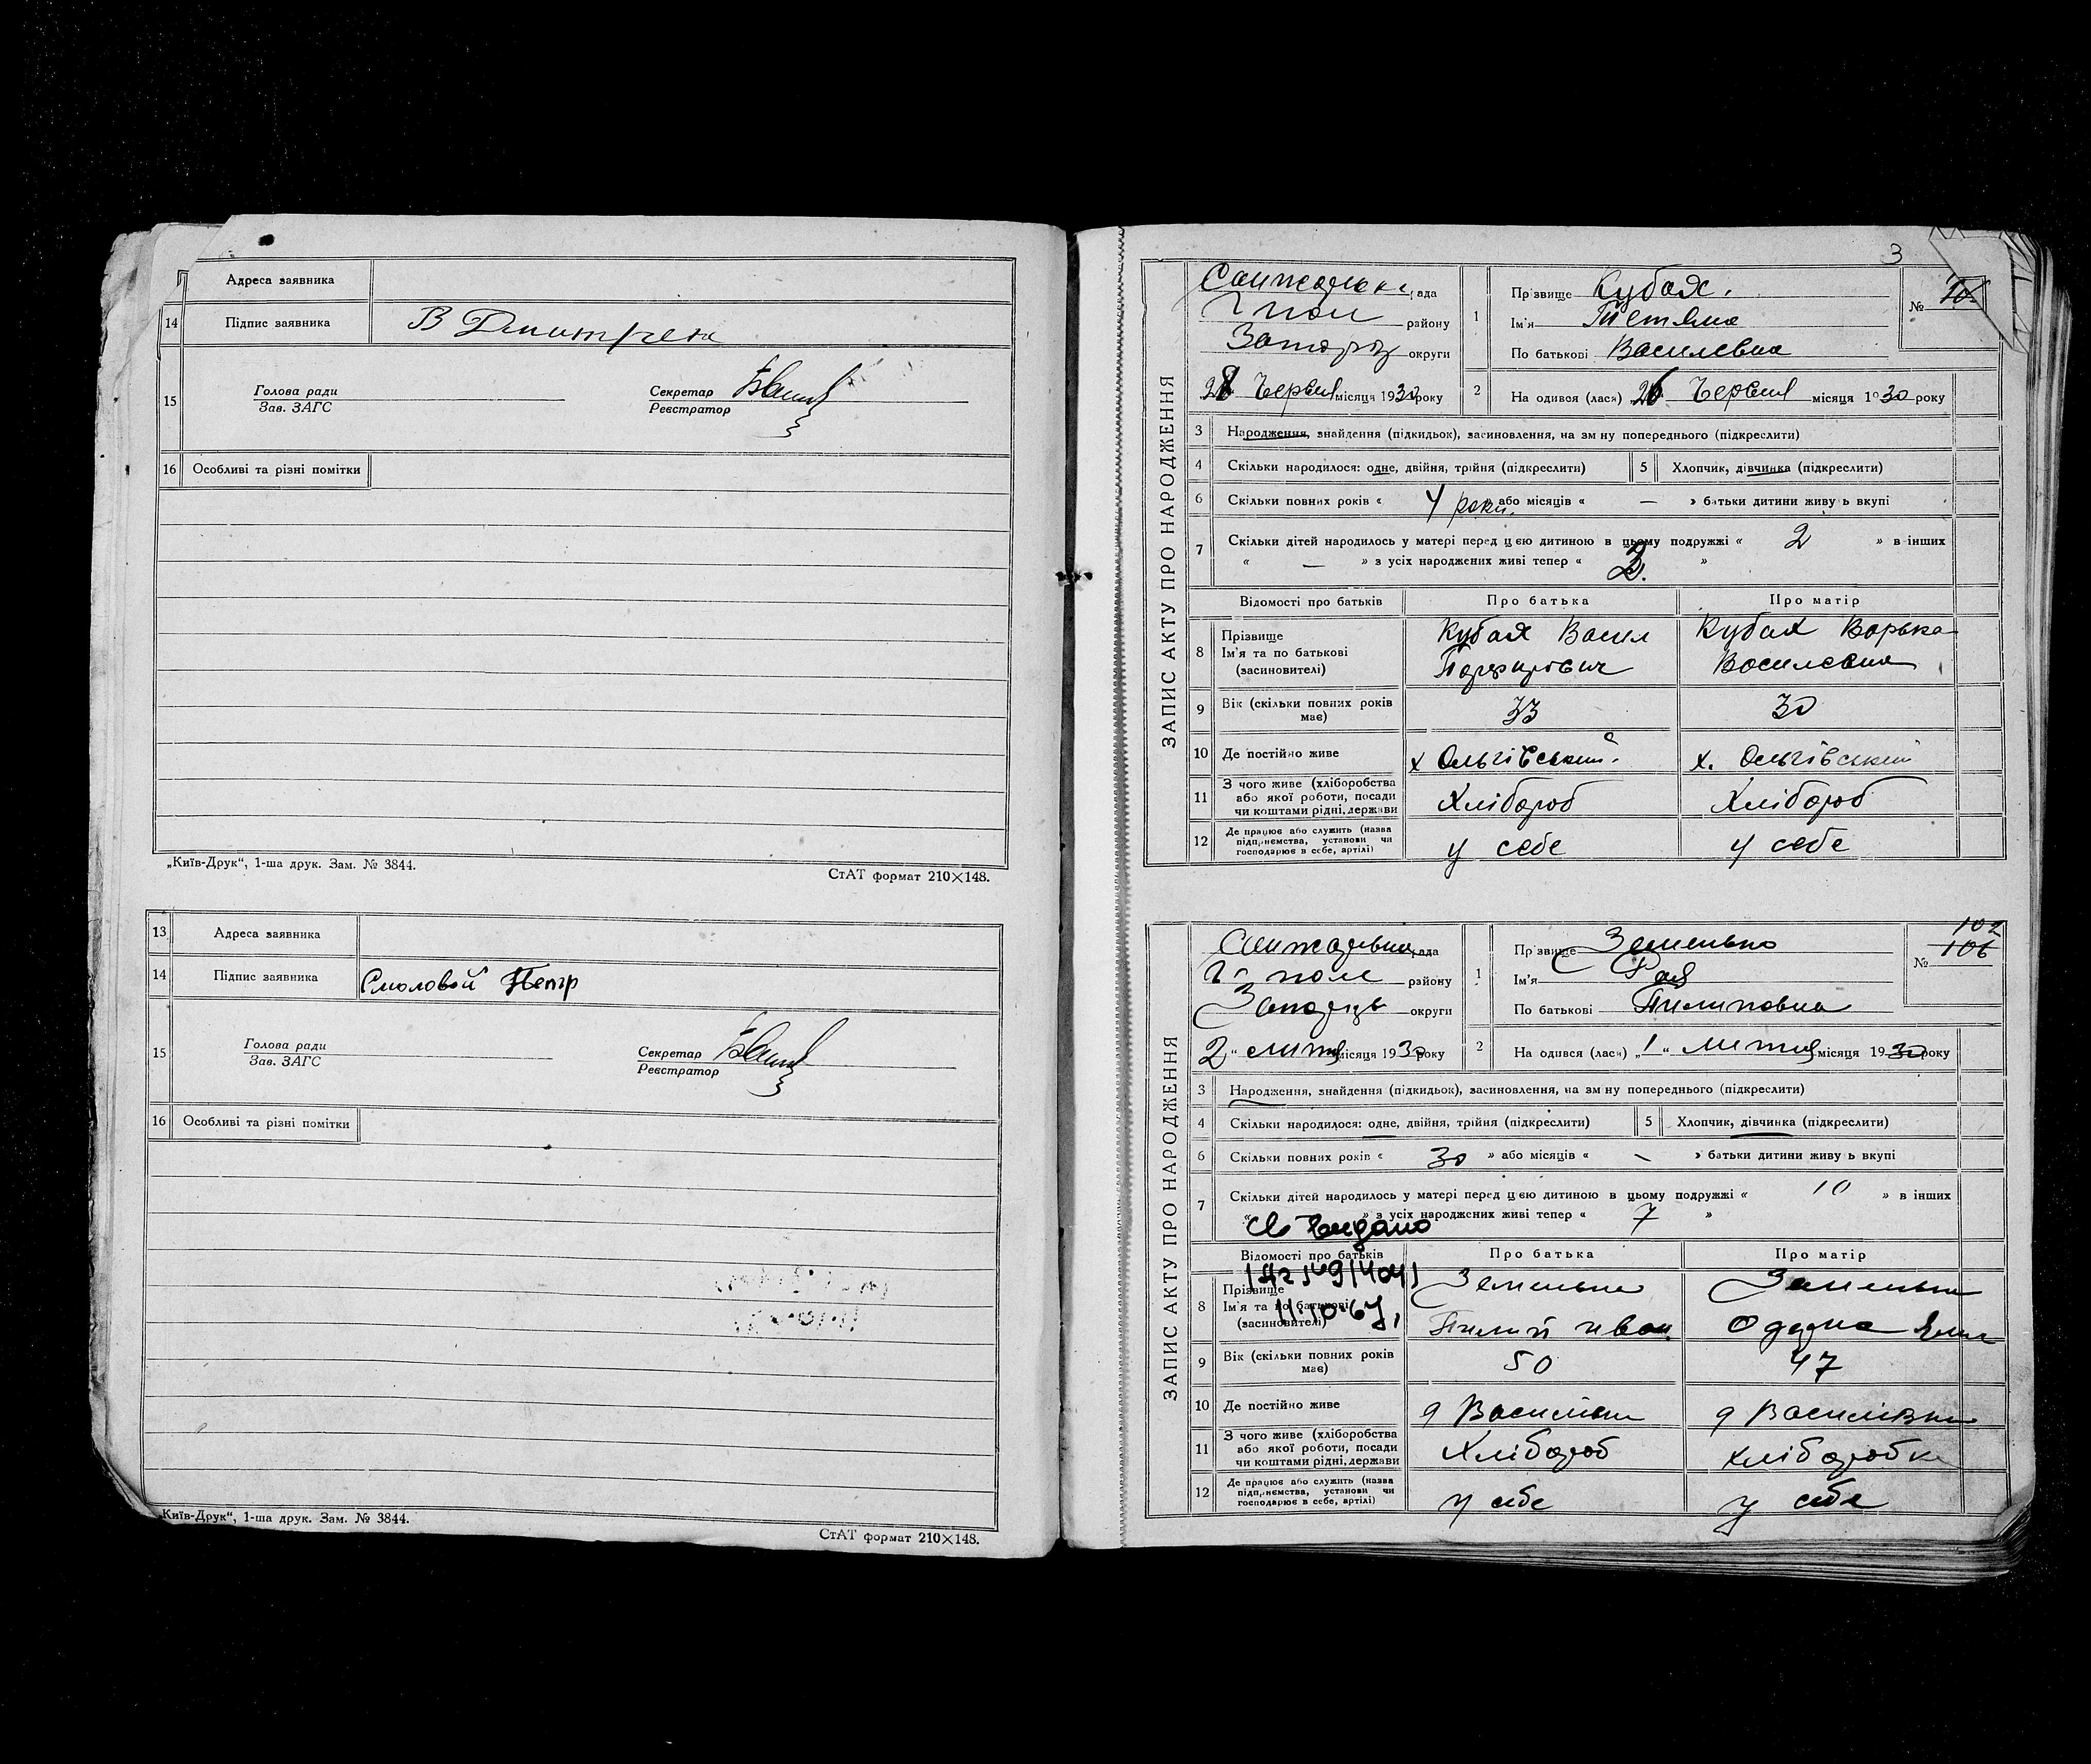 Адреса заявника
14 Підпис заявника В Дмитрета
15 Голова ради
Зав. ЗАГС
Секретар
Реєстратор
16 Особливі та різні помітки
„Київ-Друк“, 1-ша друк. Зам. № 3844.
СтАТ формат 210×148.
13 Адреса заявника
14 Підпис заявника Смоловой Петр
15 Голова ради
Зав. ЗАГС
Секретар
Реєстратор
16 Особливі та різні помітки
Київ-Друк“, 1-ша друк. Зам. № 3844.
СтАТ формат 210×148.
3
ЗАПИС АКТУ ПРО НАРОДЖЕННЯ
рада
Гпол району
Запоріз округи
28 Червня місяця 1930 року
1 Прізвище Кубах.
Ім'я Тетяна
По батькові Василевна
№
2 На одився (лася) 26 Червня місяця 1930 року
3 Народження, знайдення (підкидьок), засиновлення, на зміну попереднього (підкреслити)
4 Скільки народилося: одне, двійня, трійня (підкреслити)
5 Хлопчик, дівчинка (підкреслити)
6 Скільки повних років « 4 роки. » або місяців « — » батьки дитини живуть вкупі
7 Скільки дітей народилось у матері перед цією дитиною в цьому подружжі « 2 » в інших
« — » з усіх народжених живі тепер « 2. »
Відомості про батьків Про батька Про матір
8 Прізвище
Ім'я та по батькові
(засиновителі)
Кубах Васил
Порфирович
Кубах Варька
Василевна
9 Вік (скільки повних років має) 33 30
10 Де постійно живе х Ольгівський. х. Ольгівський
11 З чого живе (хліборобства або якої роботи, посади чи коштами рідні, держави Хлібороб Хлібороб
12 Де працює або служить (назва підприємства, установи чи господарює в себе, артілі) у себе у себе
ЗАПИС АКТУ ПРО НАРОДЖЕННЯ
рада
Г-поле району
округи
2 “ лютня місяця 1930 року
1 Прізвище Земенько
Ім'я Рая
По батькові Пилиповна
102
№ 106
2 На одився (лася) „1“ лютня місяця 1930 року
3 Народження, знайдення (підкидьок), засиновлення, на зміну попереднього (підкреслити)
4 Скільки народилося: одне, двійня, трійня (підкреслити)
5 Хлопчик, дівчинка (підкреслити)
6 Скільки повних років « 30 » або місяців « — » батьки дитини живуть вкупі
7 Скільки дітей народилось у матері перед цією дитиною в цьому подружжі « 10 » в інших
» з усіх народжених живі тепер « 7 »
Відомості про батьків Про батька Про матір
11.10.67
8 Прізвище
Ім'я та по батькові
(засиновителі)
Пилип Иван.
9 Вік (скільки повних років має) 50 47
10 Де постійно живе
11 З чого живе (хліборобства або якої роботи, посади чи коштами рідні, держави Хлібороб хліборобка
12 Де працює або служить (назва підприємства, установи чи господарює в себе, артілі) у себе у себе